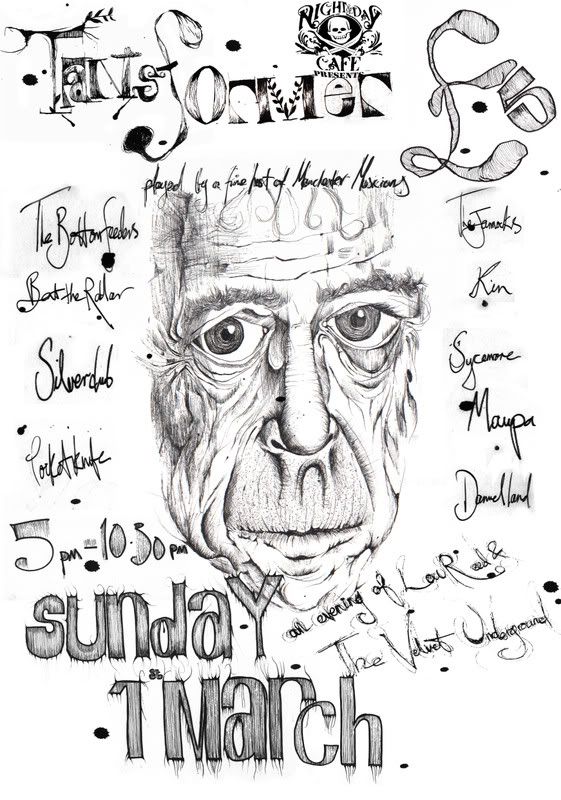 NIGHT & DAY
CAFE
PRESENTS
Transformer
played by a fine host of Manchester Musicians
The Bottomfeeders
Beat the Radar
Silverclub
Pocketknife
The
Kin
Sycamore
Maupa
Daniel Land
5pm-10.30pm
Sunday
1 March
an evening of Lou Reed &
The Velvet Underground